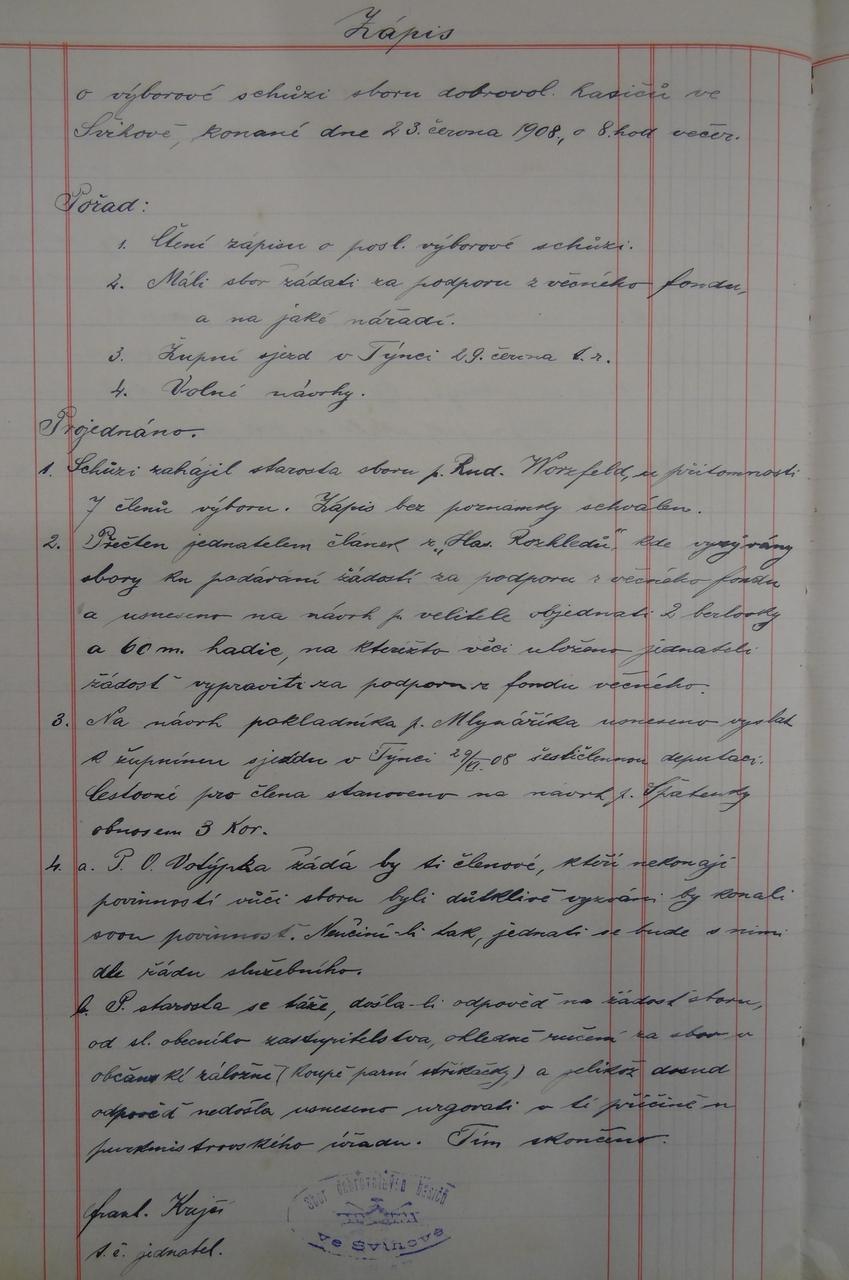 Zápis
o výborové schůzi sboru dobrovol. hasičů ve
Svihově, konané dne 23. června 1908., o 8. hod večer.
Pořad:
1. Čtení zápisu o posl. výborové schůzi.
2. Máli sbor žádati za podporu z věčného fondu,
a na jaké nářadí.
3. Župní sjezd v Týnci 29. června t. r.
4. Volné návrhy.
Projednáno.
1. Schůzi zahájil starosta sboru p. Rud. Worzfeld, u přítomnosti
7 členů výboru. Zápis bez poznámky schválen.
2. Přečten jednatelem článek z „Has. Rozhledů", kde vyzývány
sbory ku podávání žádostí za podporu z věčného fondu
a usneseno na návrh p. velitele objednati 2 berlovky
a 60 m. hadic, na kterižto věci uloženo jednateli
žádost vypraviti za podporu z fondu věčného.
3. Na návrh pokladníka p. Mlynáříka usneseno vyslat
k župnímu sjezdu v Týnci 29/VI. 08 šestičlennou deputaci.
Cestovné pro člena stanoveno na návrh p. Špátenky
obnosem 3 Kor.
4. a. P. O. Votýpka žádá by ti členové, kteří nekonají
povinností vůči sboru byli důtklivě vyzváni by konali
svou povinnost. Neučiní-li tak, jednati se bude s nimi
dle řádu služebního.
b. P. starosta se táže, došla-li odpověď na žádost sboru,
od sl. obecního zastupitelstva, ohledně ručení za sbor v
občanské záložně (koupě parní stříkačky) a jelikož dosud
odpověď nedošla usneseno urgovati v té příčině u
purkmistrovského úřadu. Tím skončeno.
frant. Krejší
t. č. jednatel.
Sbor dobrovolných hasičů
ve Svihově